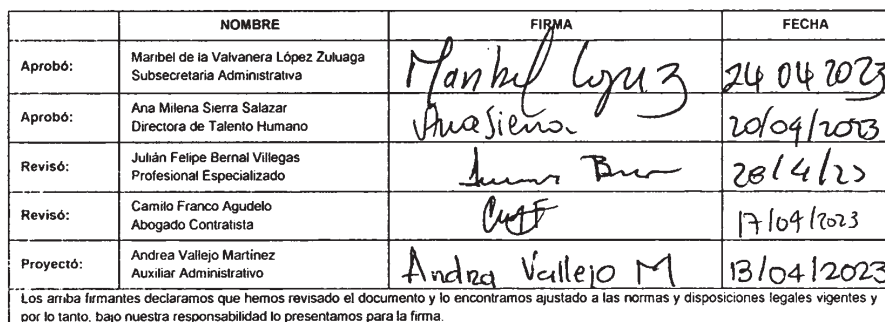 NOMBRE FIRMA FECHA
Aprobó: Maribel de la Valvanera López Zuluaga
Subsecretaria Administrativa
Maribel López Z 24 04 2023
Aprobó: Ana Milena Sierra Salazar
Directora de Talento Humano
Ana Sierra. 20/04/2023
Revisó: Julián Felipe Bernal Villegas
Profesional Especializado
Revisó: Camilo Franco Agudelo
Abogado Contratista
17/04/2023
Proyectó: Andrea Vallejo Martínez
Auxiliar Administrativo
Andrea Vallejo M 13/04/2023
Los arriba firmantes declaramos que hemos revisado el documento y lo encontramos ajustado a las normas y disposiciones legales vigentes y
por lo tanto, bajo nuestra responsabilidad lo presentamos para la firma.